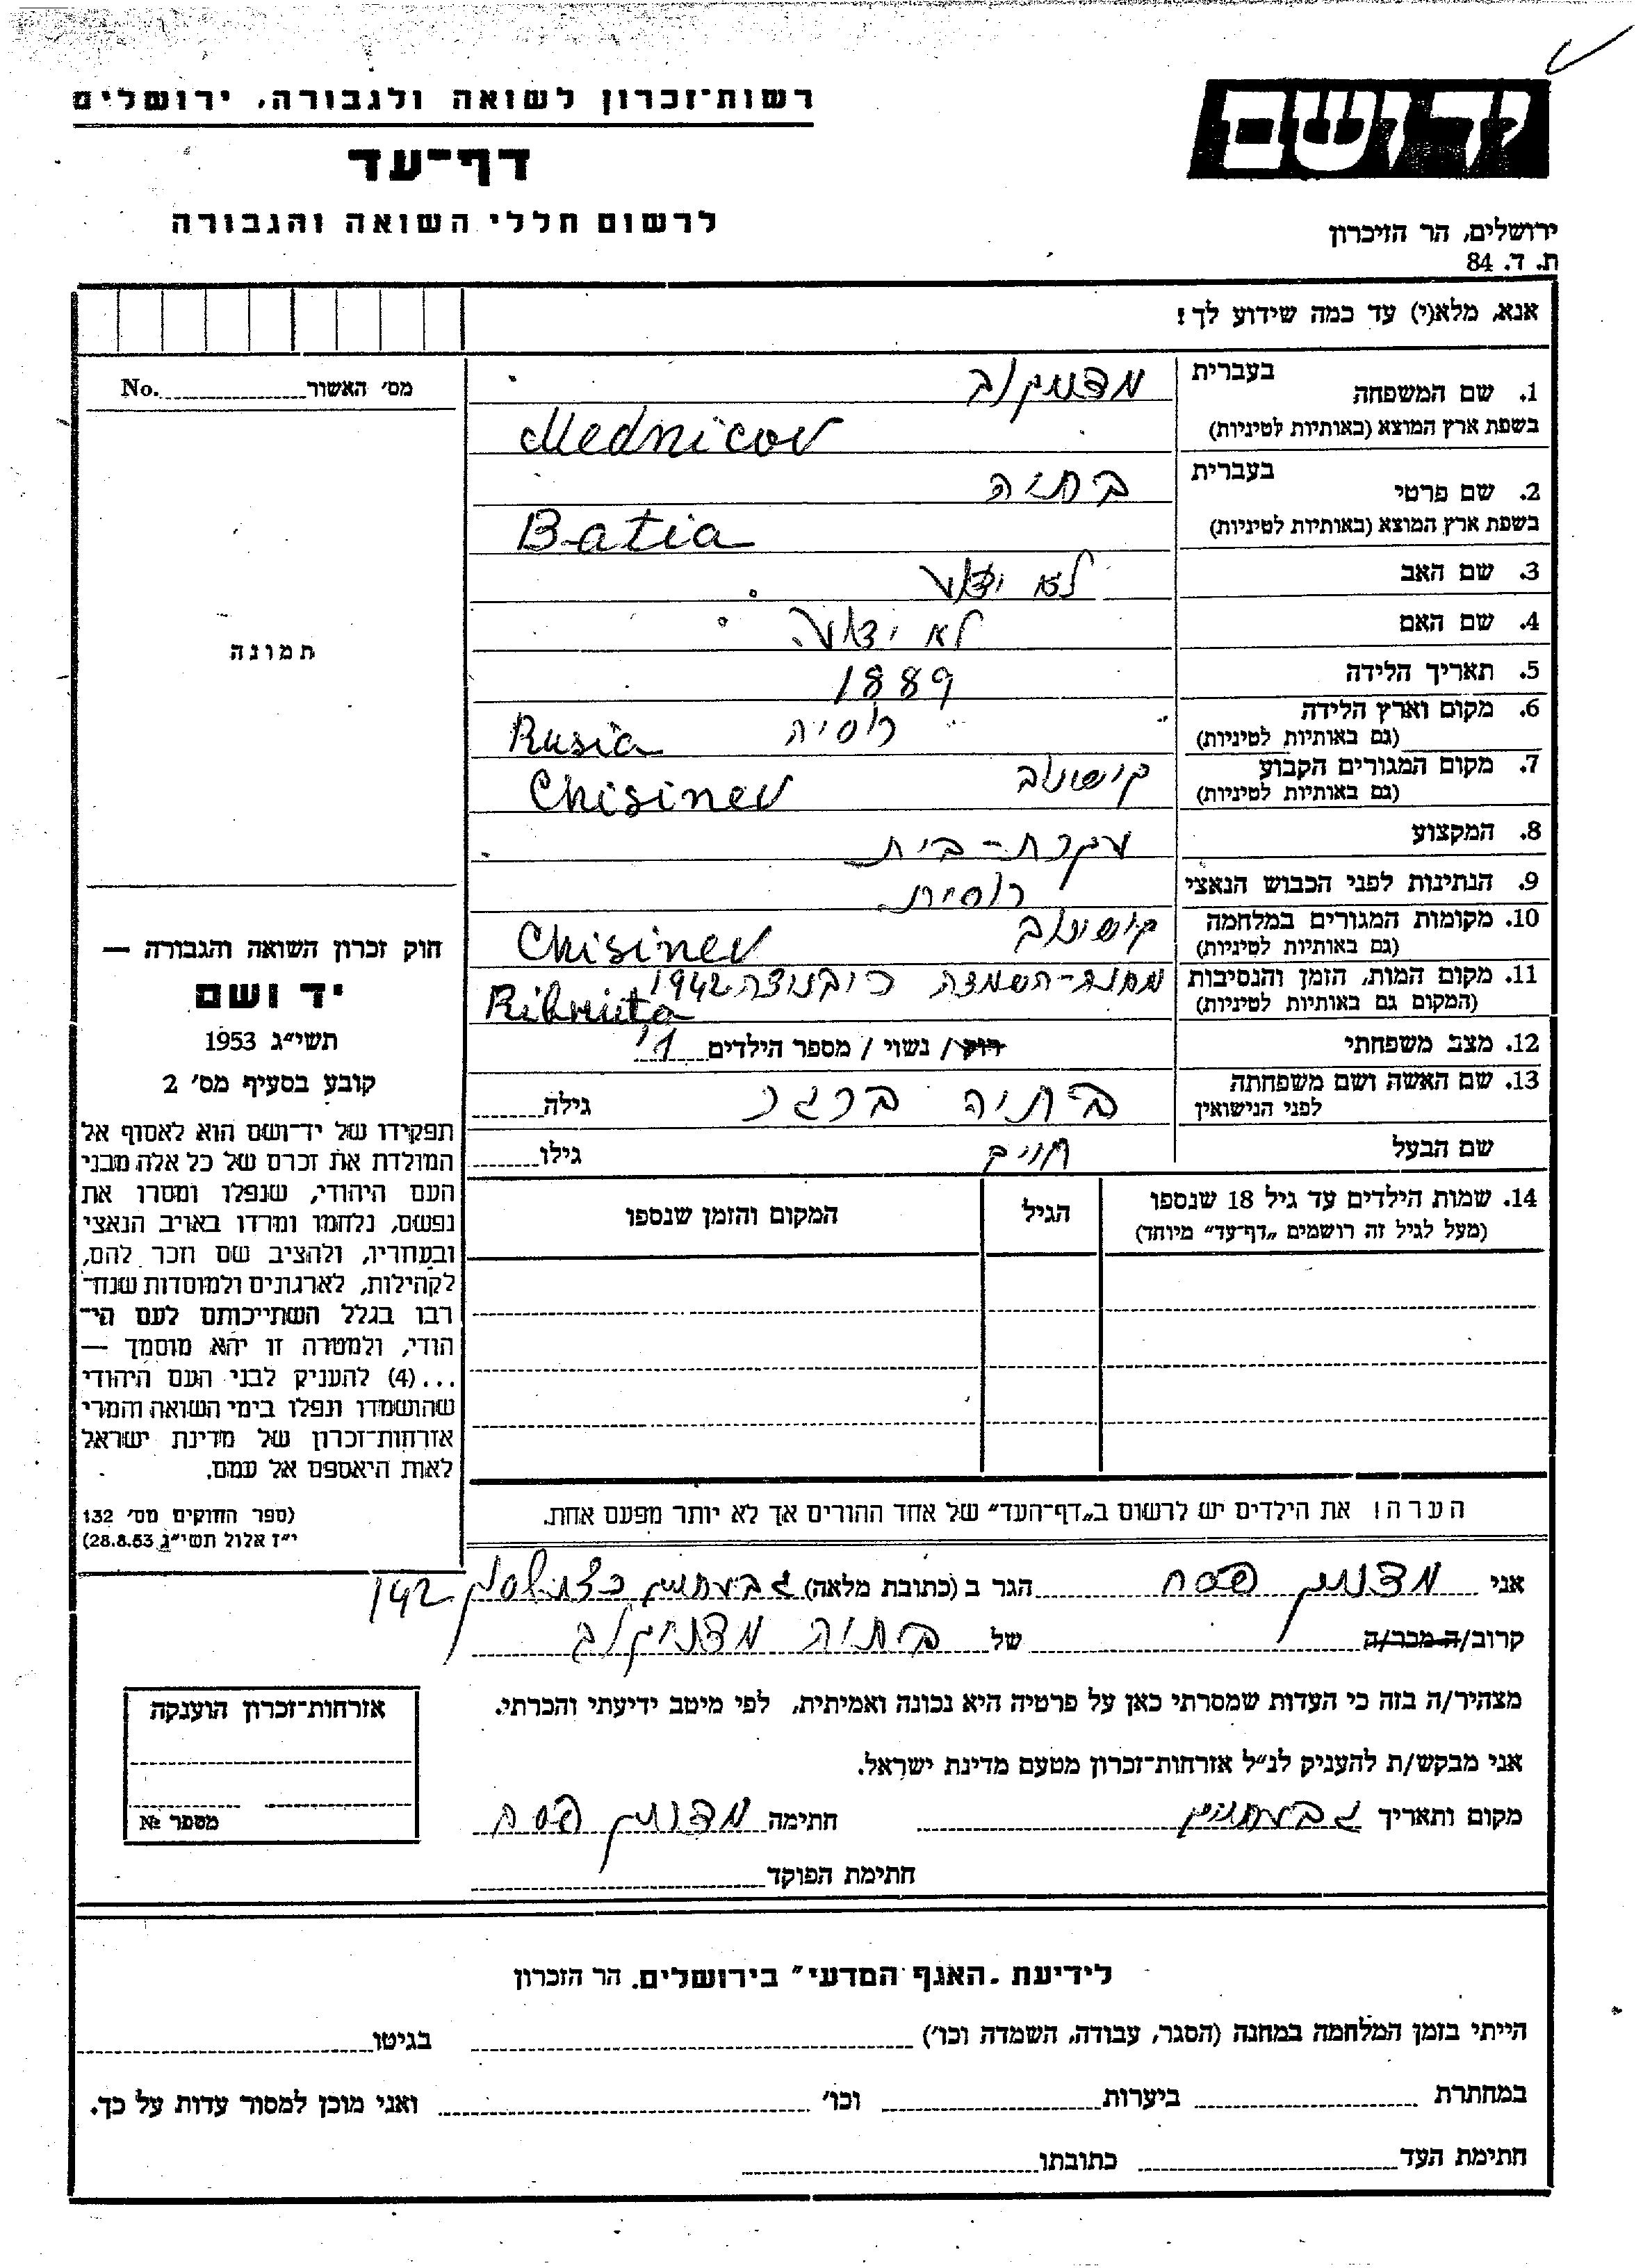 רשות־זכרון לשואה ולגבורה, ירושלים
דף־עד
לרשום חללי השואה והגבורה
יד ושם
ירושלים, הר הזיכרון
ת. ד. 84
אנא, מלא(י) עד כמה שידוע לך!
מס׳ האשור No.
תמונה
1. שם המשפחה בעברית מדניקוב
בשפת ארץ המוצא (באותיות לטיניות) Mednicov
2. שם פרטי בעברית בתיה
בשפת ארץ המוצא (באותיות לטיניות) Batia
3. שם האב לא ידוע
4. שם האם לא ידוע
5. תאריך הלידה 1889
6. מקום וארץ הלידה רוסיה Rusia
(גם באותיות לטיניות)
7. מקום המגורים הקבוע קישינוב Chisinev
(גם באותיות לטיניות)
8. המקצוע עקרת-בית
9. הנתינות לפני הכבוש הנאצי רוסית
10. מקומות המגורים במלחמה קישינוב Chisinev
(גם באותיות לטיניות)
11. מקום המות, הזמן והנסיבות מחנה-השמדה 1942
(המקום גם באותיות לטיניות)
12. מצב משפחתי רווק / נשוי / מספר הילדים
13. שם האשה ושם משפחתה לפני הנישואין בתיה ברגר גילה
שם הבעל חיים גילו
14. שמות הילדים עד גיל 18 שנספו הגיל המקום והזמן שנספו
(מעל לגיל זה רושמים „דף־עד״ מיוחד)
הערה! את הילדים יש לרשום ב„דף־העד״ של אחד ההורים אך לא יותר מפעם אחת.
חוק זכרון השואה והגבורה —
יד ושם
תשי״ג 1953
קובע בסעיף מס׳ 2
תפקידו של יד־ושם הוא לאסוף אל
המולדת את זכרם של כל אלה מבני
העם היהודי, שנפלו ומסרו את
נפשם, נלחמו ומרדו באויב הנאצי
ובעוזריו, ולהציב שם וזכר להם,
לקהילות, לארגונים ולמוסדות שנח־
רבו בגלל השתייכותם לעם הי־
הודי, ולמטרה זו יהא מוסמך —
...(4) להעניק לבני העם היהודי
שהושמדו ונפלו בימי השואה והמרי
אזרחות־זכרון של מדינת ישראל
לאות היאספם אל עמם.
(ספר החוקים מס׳ 132
י״ז אלול תשי״ג 28.8.53)
אני מדניק פסח הגר ב (כתובת מלאה) גבעתיים כצנלסון 142
קרוב/ה מכר/ה של בתיה מדניקוב
מצהיר/ה בזה כי העדות שמסרתי כאן על פרטיה היא נכונה ואמיתית, לפי מיטב ידיעתי והכרתי.
אני מבקש/ת להעניק לנ״ל אזרחות־זכרון מטעם מדינת ישראל.
מקום ותאריך גבעתיים חתימה מדניק פסח
חתימת הפוקד
אזרחות־זכרון הוענקה
מספר №
לידיעת „האגף המדעי״ בירושלים, הר הזכרון
הייתי בזמן המלחמה במחנה (הסגר, עבודה, השמדה וכו׳) בגיטו
במחתרת ביערות וכו׳ ואני מוכן למסור עדות על כך.
חתימת העד כתובתו